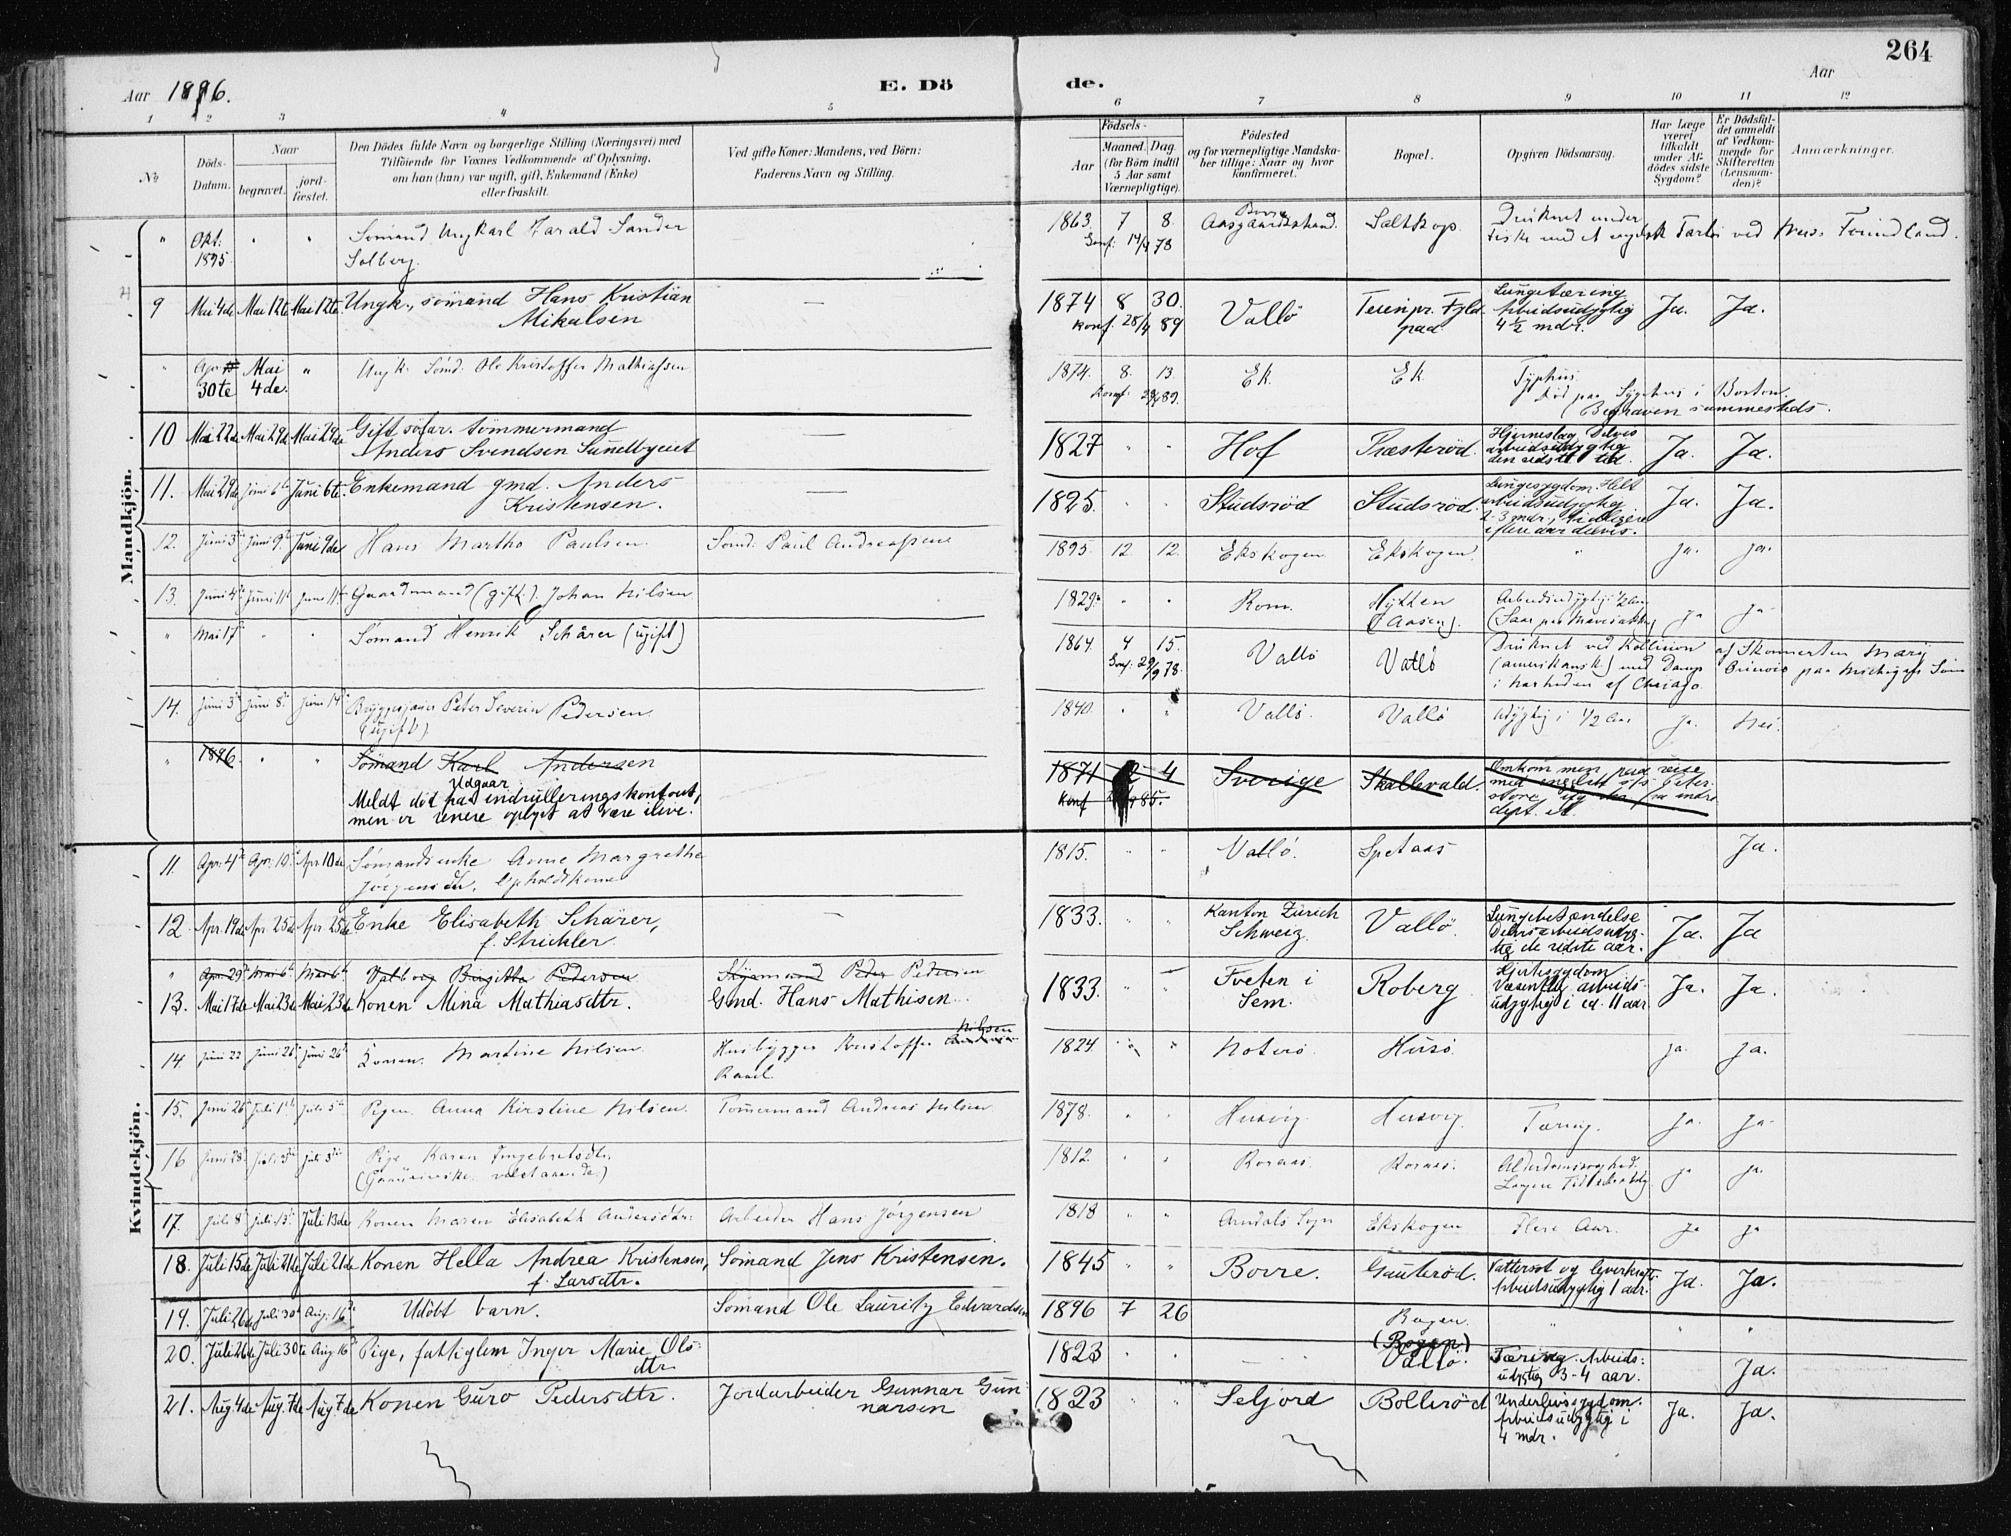 264
Aar 1896.
E. Dö
de.
Aar
1 2 3 4 5 6 7 8 9 10 11 12
No
Döds-Datum.
Naar
begravet.
jord-fæstet.
Den Dödes fulde Navn og borgerlige Stilling (Næringsvei) med
Tilföiende for Voxnes Vedkommende af Oplysning,
om han (hun) var ugift, gift, Enkemand (Enke)
eller fraskilt.
Ved gifte Koner: Mandens, ved Börn:
Faderens Navn og Stilling.
Födsels-
Aar
Maaned. Dag.
(for Börn indtil
5 Aar samt
Værnepligtige).
Födested
og for værnepligtige Mandska-
ber tillige: Naar og hvor
konfirmeret.
Bopæl.
Opgiven Dödsaarsag.
Har Læge
været
tilkaldt
under Af-
dödes sidste
Sygdom?
Er Dödsfal-
det anmeldt
af Vedkom-
mende for
Skifteretten
(Lensman-
den)?
Anmærkninger.
Mandkjön.
" Okt: 1895. " " Sömand Ungkarl Harald Sander Solberg. 1863 7 8. Borre Aasgaardstrand. Saltkop. Druknet under
Fiske med et engelsk Fartöi ved
9 Mai 4de Mai 12te Mai 12te. Ungk., sömand Hans Kristian Mikalsen — 1874 8 30. Konf. 28/4 89 Vallö Lungetæring Arbeidsudygtig 4½ mdr. Ja. Ja.
" Apr. 30te Mai 4de. " Ungk. Sömd. Ole Kristoffer Mathiassen 1874. 8. 13. Konf: 89. Ek. Ek Typhus.
Död paa Sygehus i Boston.
(Begraven sammesteds.
10 Mai 22de Mai 29de Mai 29de Gift söfar. tömmermand Anders Svendsen Sundbyeiet — 1827 " " Hof Præsteröd. Hjerneslag Delvis arbeidsudygtig den sidste tid. Ja. Ja.
11. Mai 29de Juni 6te Juni 6te. Enkemand gmd. Anders Kristensen. — 1825. " " Studsröd Studsröd. Lungesygdom. Helt arbeidsudygtig 2-3 mdr, tidligere flere aar delvis. Ja. Ja.
12. Juni 3de Juni 9de Juni 9de Hans Martho Paulsen. Sömd. Paul Andreassen 1895. 12 12. Ekskogen Ekskogen. " ja. ja.
13. Juni 4de Juni 11te Juni 11te Gaardmand (gift). Johan Nilsen 1829. " " Rom. Hytten (Aasen). Arbeidsudygtig ½ Aar ja ja
" Mai 17 " " Sömand Henrik Schärer (ugift) 1864. 4 15. 78. Vallö Vallö Druknet ved Kollision af Skonnerten Mary
(amerikansk) med Damp
i nærheden af Chicago.
14. Juni 3de Juni 8de Juni 14de Peter Severin Pedersen. (ugift) 1840 " " Vallö. Vallö Udygtig i ½ Aar ja. Nei.
" 1896. " " Sömand Karl Andersen
Udgaar
Meldt död paa indrulleringskontoret,
men er senere oplyst at være ilive.
1871 2 4 Konf 85. Sverige Skallevald. Omkom men paa reise
med engelsk s/s
Kvindekjön.
11. Apr: 4de Apr: 10de Apr. 10de Sömandsenke Anne Margrethe Jörgensdtr. 1815. " " Vallö. Spetaas Ja.
12 Apr. 19de Apr. 25de Apr. 25de Enke Elisabeth Schärer, f. Strickler. — 1833. " " Kanton Zürich Schweiz Vallö. Lungebetændelse Delvis arbeidsudyg-tig de sidste aar. Ja. Ja
" Apr. 29de Mai 6te Mai 6te Valborg Birgitta Pedersen Styrmand Peder Pedersen
13. Mai 17de Mai 23de Mai 23de Konen Mina Mathiasdtr. Gmd. Hans Mathisen. 1833. " " Fveten i Sem. Roberg Hjertesygdom Væsentlig arbeids-udygtig i ca. 11 aar. Ja. Ja.
14. Juni 22 Juni 26de Juni 26de Konen. Martine Nilsen. Husbygger Kristoffer Nilsen 1824 " " Nöterö. Husö. ja. ja.
15. Juni 26de Juli 1ste Juli 5te Pigen. Anna Kirstine Nilsen. Tömmermand Andreas Nilsen 1878. " " Husvig. Husvig. Tæring. ja. ja.
16 Juni 28de Juli 3die Juli 3die Pige Karen Ingebretsdtr. 1812. " " Roraas. Roraas. Alderdomssvaghed. ja ja.
17. Juli 8de Juli 13de Juli 13de Konen Maren Elisabeth Andersdtr. Arbeider Hans Jörgensen 1818 " " Arndals Sogn Ekskogen Flere Aar. ja ja
18. Juli 15de Juli 21de Juli 21de Konen Hella Andrea Kristensen, f. Larsdtr. Sömand Jens Kristensen. 1845 " " Borre. Gauteröd. Vattersot og leverkræft. Arbeidsudygtig 1 aar. Ja. Ja.
19. Juli 26de Juli 30te Aug: 16de Udöbt barn. Sömand Ole Lauritz Edvardsen 1896 7 26 Bogen. " " "
20. Juli 26de Juli 30te Aug 16de Pige, fattiglem Inger Marie Ols-dtr. 1823 " — (Bogen) Vallö. Tæring. Arbeids-udygtig 3-4 aar. Ja.
21. Aug 4de Aug. 7de Aug 7de Konen Guro Pedersdtr. Jordarbeider Gunnar Gun-narsen 1823 " " Seljord Bolleröd Underlivssygdom. Arbeidsudygtig i 4 mdr. Ja. Ja.